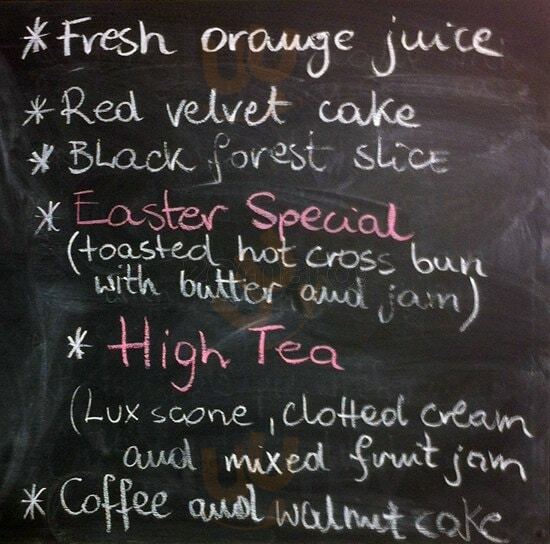 * Fresh orange juice
* Red velvet cake
* Black forest slice
* Easter Special
(toasted hot cross bun
with butter and jam)
* High Tea
(Lux scone, clotted cream
and mixed fruit jam
* Coffee and walnut cake